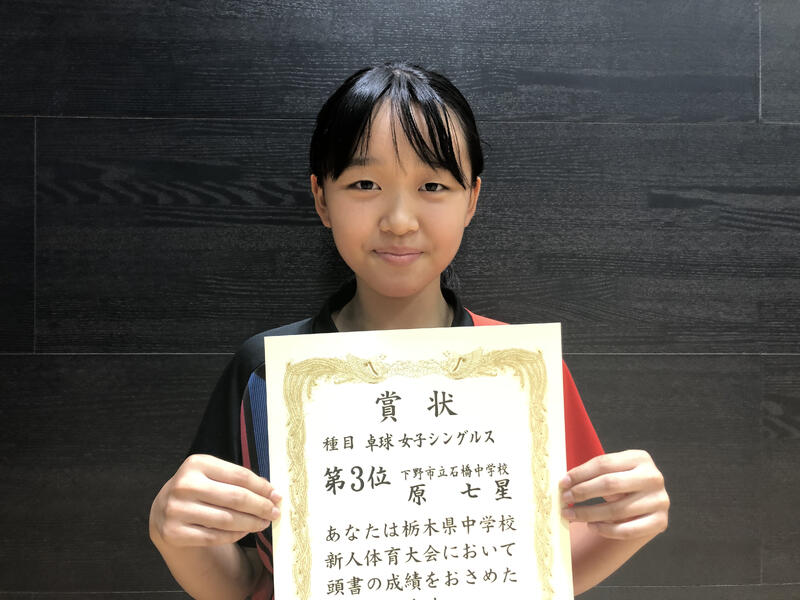 賞状
種目 卓球 女子シングルス
第3位 下野市立石橋中学校
原 七星
あなたは栃木県中学校
新人体育大会において
頭書の成績をおさめた